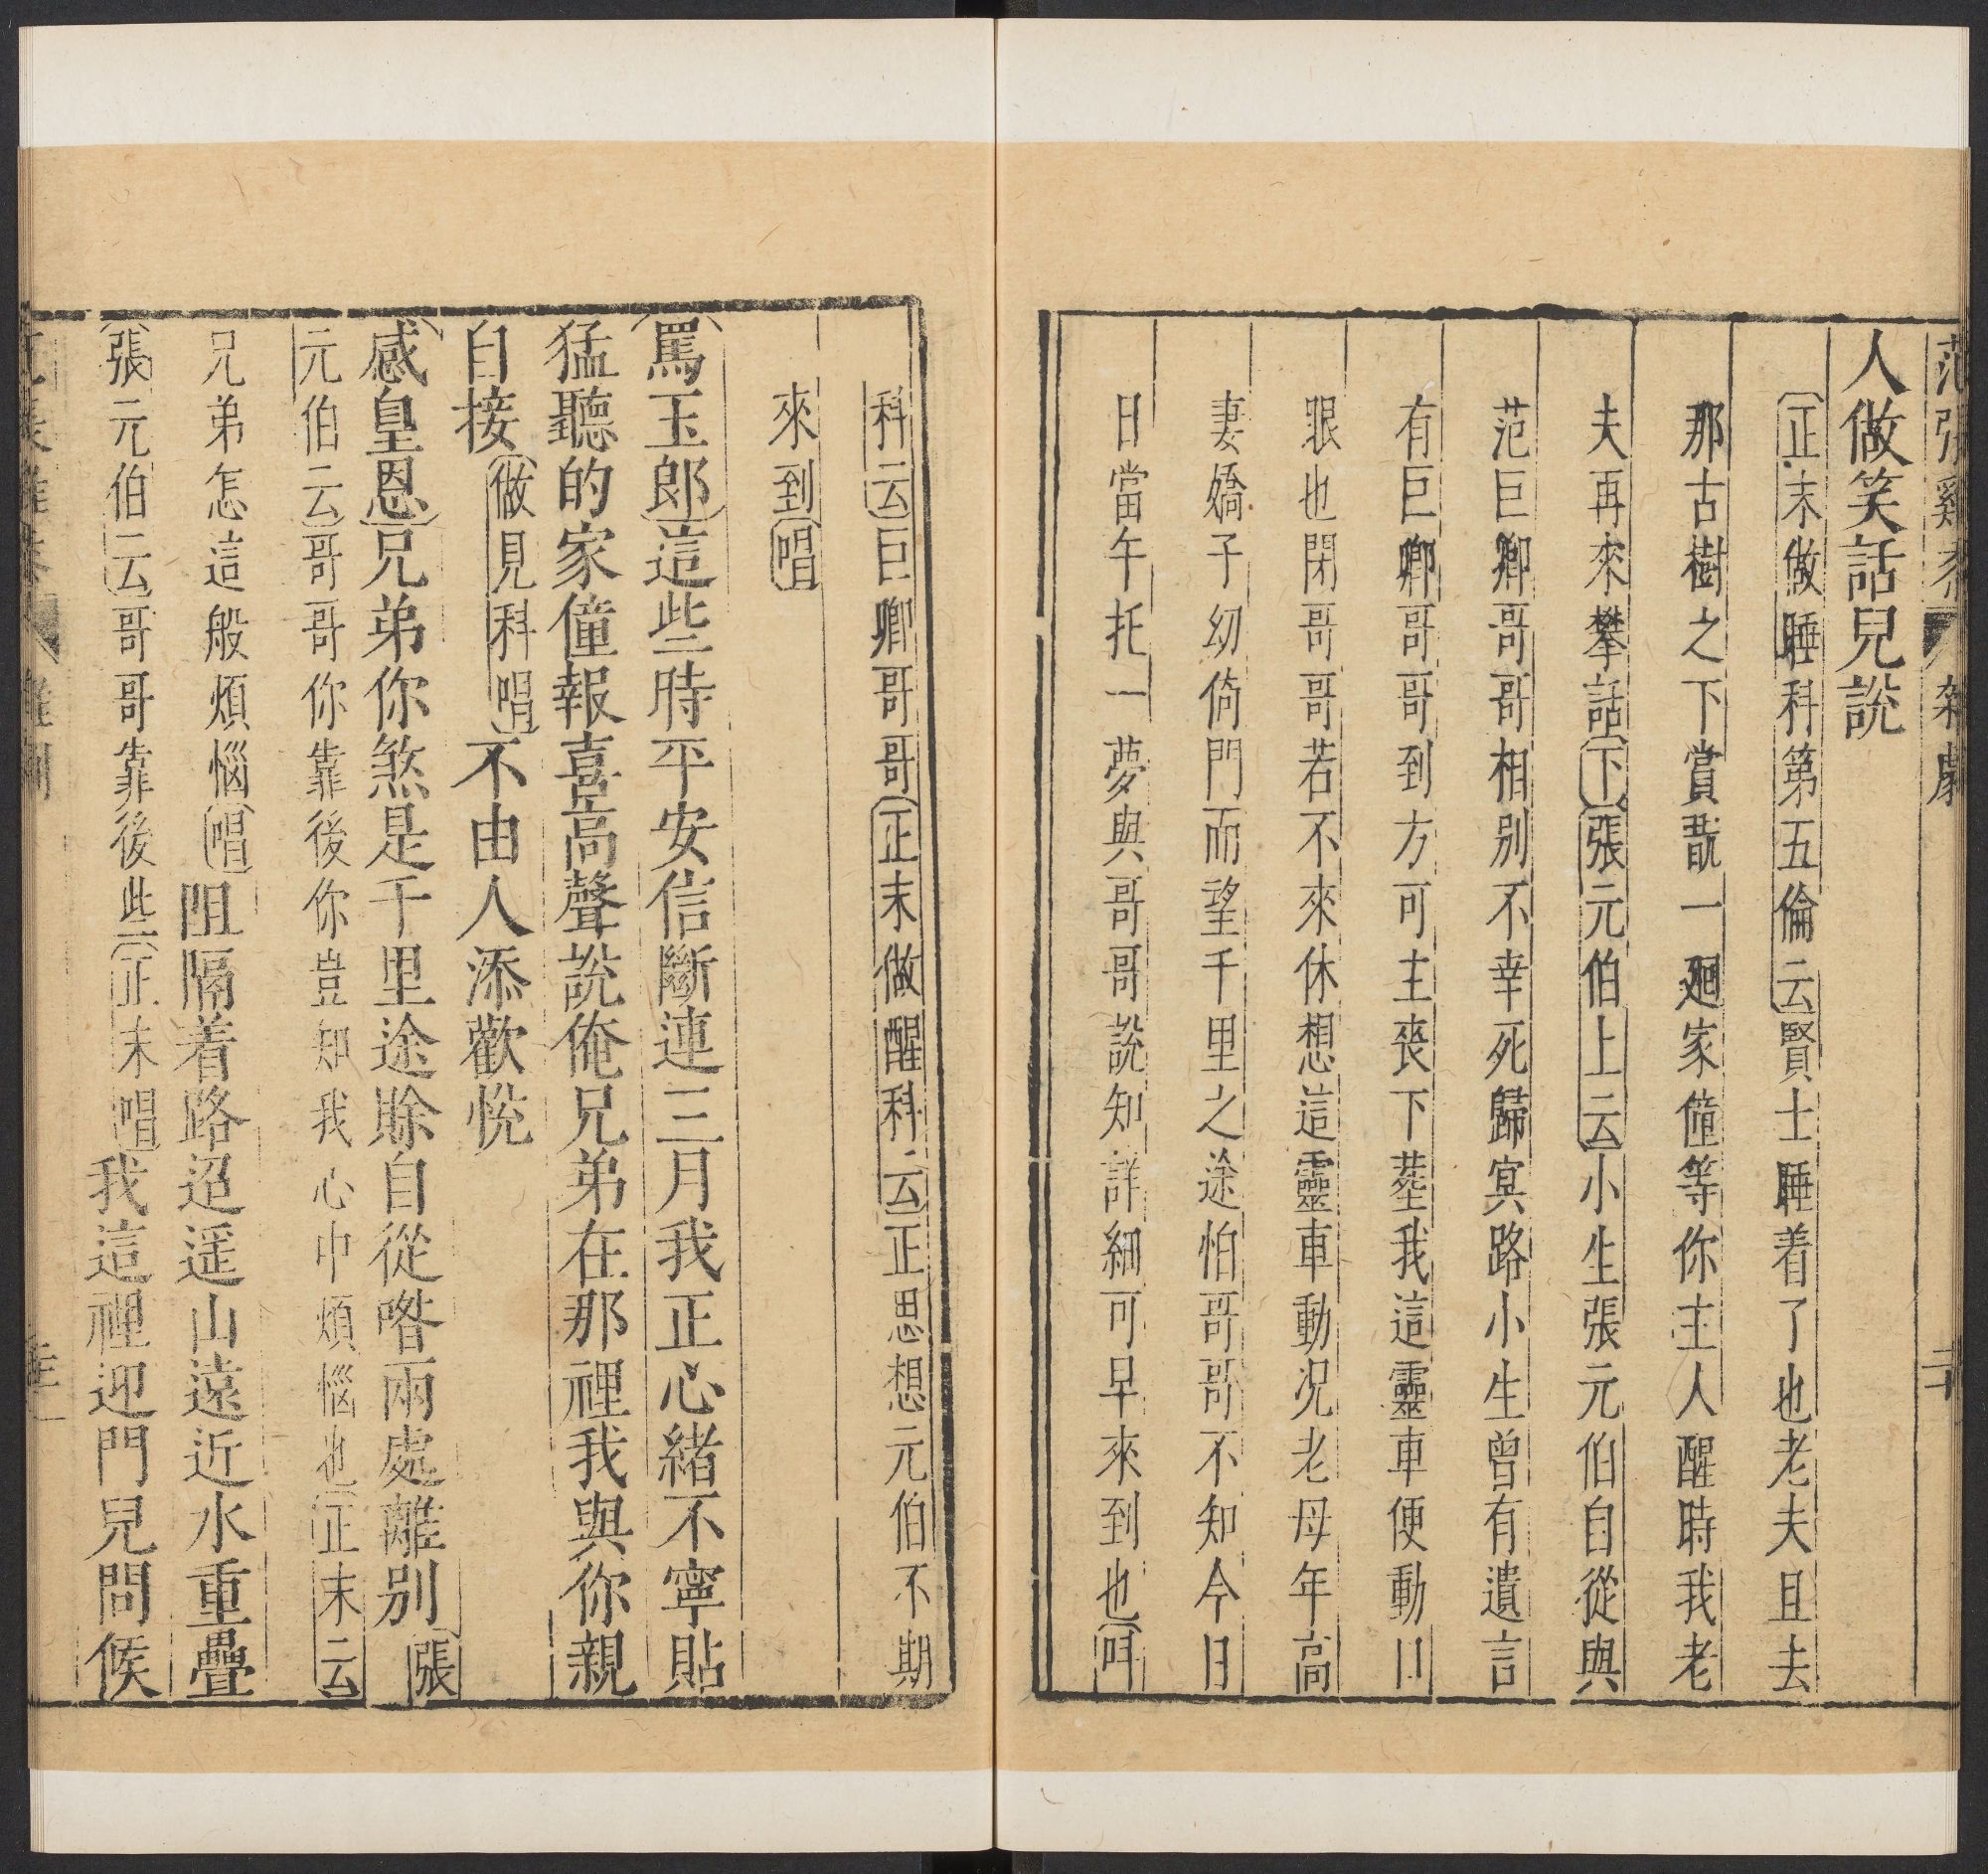 范張雞黍 雜劇 二十
人做笑話兒說
正末做睡科第五倫云賢士睡着了也老夫且去
那古樹之下賞翫一廻家僮等你主人醒時我老
夫再來攀話下張元伯上云小生張元伯自從與
范巨卿哥哥相別不幸死歸冥路小生曾有遺言
有巨卿哥哥到方可主喪下塟我這靈車便動
眼也閉哥哥若不來休想這靈車動况老母年高
妻嬌子幼倚門而望千里之途怕哥哥不知今日
日當午托一夢與哥哥說知詳細可早來到也呌
科云巨卿哥哥正末做醒科云正思想元伯不期
來到唱
罵玉郎這些時平安信斷連三月我正心緒不寧貼
猛聽的家僮報喜高聲說俺兄弟在那裡我與你親
自接做見科唱不由人添歡悅
感皇恩兄弟你煞是千里途賒自從喒兩處離別張
元伯云哥哥你靠後你豈知我心中煩惱也正末云
兄弟怎這般煩惱唱阻隔着路迢遥山遠近水重疊
張元伯云哥哥靠後些正末唱我這裡迎門兒問候